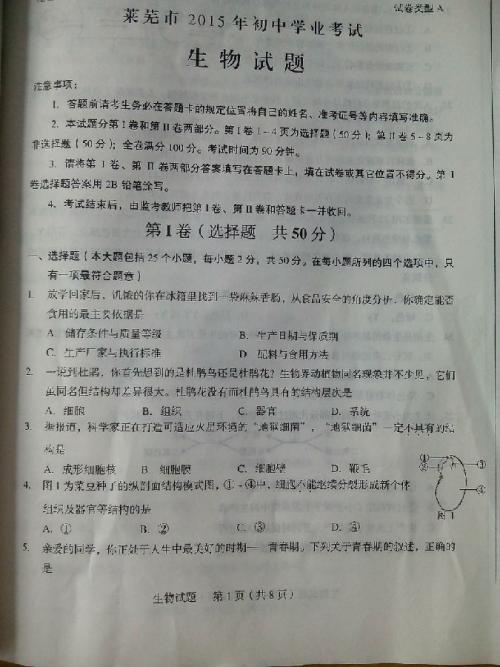 试卷类型 A
莱芜市 2015 年初中学业考试
生物试题
注意事项:
1. 答题前请考生务必在答题卡的规定位置将自己的姓名、准考证号等内容填写准确。
2. 本试题分第Ⅰ卷和第Ⅱ卷两部分。第Ⅰ卷 1~4 页为选择题(50 分);第Ⅱ卷 5~8 页为
非选择题(50 分);全卷满分 100 分。考试时间为 90 分钟。
3. 请将第Ⅰ卷、第Ⅱ卷两部分答案填写在答题卡上,填在试卷或其它位置不得分。第Ⅰ
卷选择题答案用 2B 铅笔涂写。
4. 考试结束后,由监考教师把第Ⅰ卷、第Ⅱ卷和答题卡一并收回。
第Ⅰ卷(选择题 共 50 分)
一、选择题(本大题包括 25 个小题,每小题 2 分,共 50 分。在每小题所列的四个选项中,只
有一项最符合题意)
1. 放学回家后,饥饿的你在冰箱里找到一袋麻辣香肠,从食品安全的角度分析,你确定能否
食用的最主要依据是
A. 储存条件与质量等级 B. 生产日期与保质期
C. 生产厂家与执行标准 D. 配料与食用方法
2. 一说到杜鹃,你首先想到的是杜鹃鸟还是杜鹃花?生物界动植物同名现象并不少见,它们
虽同名但结构却差异很大。杜鹃花没有而杜鹃鸟具有的结构层次是
A. 细胞 B. 组织 C. 器官 D. 系统
3. 据报道,科学家正在打造可适应火星环境的“地狱细菌”,“地狱细菌”一定不具有的结
构是
A. 成形细胞核 B. 细胞膜 C. 细胞壁 D. 鞭毛
4. 图 1 为菜豆种子的纵剖面结构模式图,①~④中,细胞不能继续分裂形成新个体
组织及器官等结构的是
A. ① B. ② C. ③ D. ④
图 1
5. 亲爱的同学,你正处于人生中最美好的时期——青春期。下列关于青春期的叙述,正确的
是
生物试题 第 1 页(共 8 页)